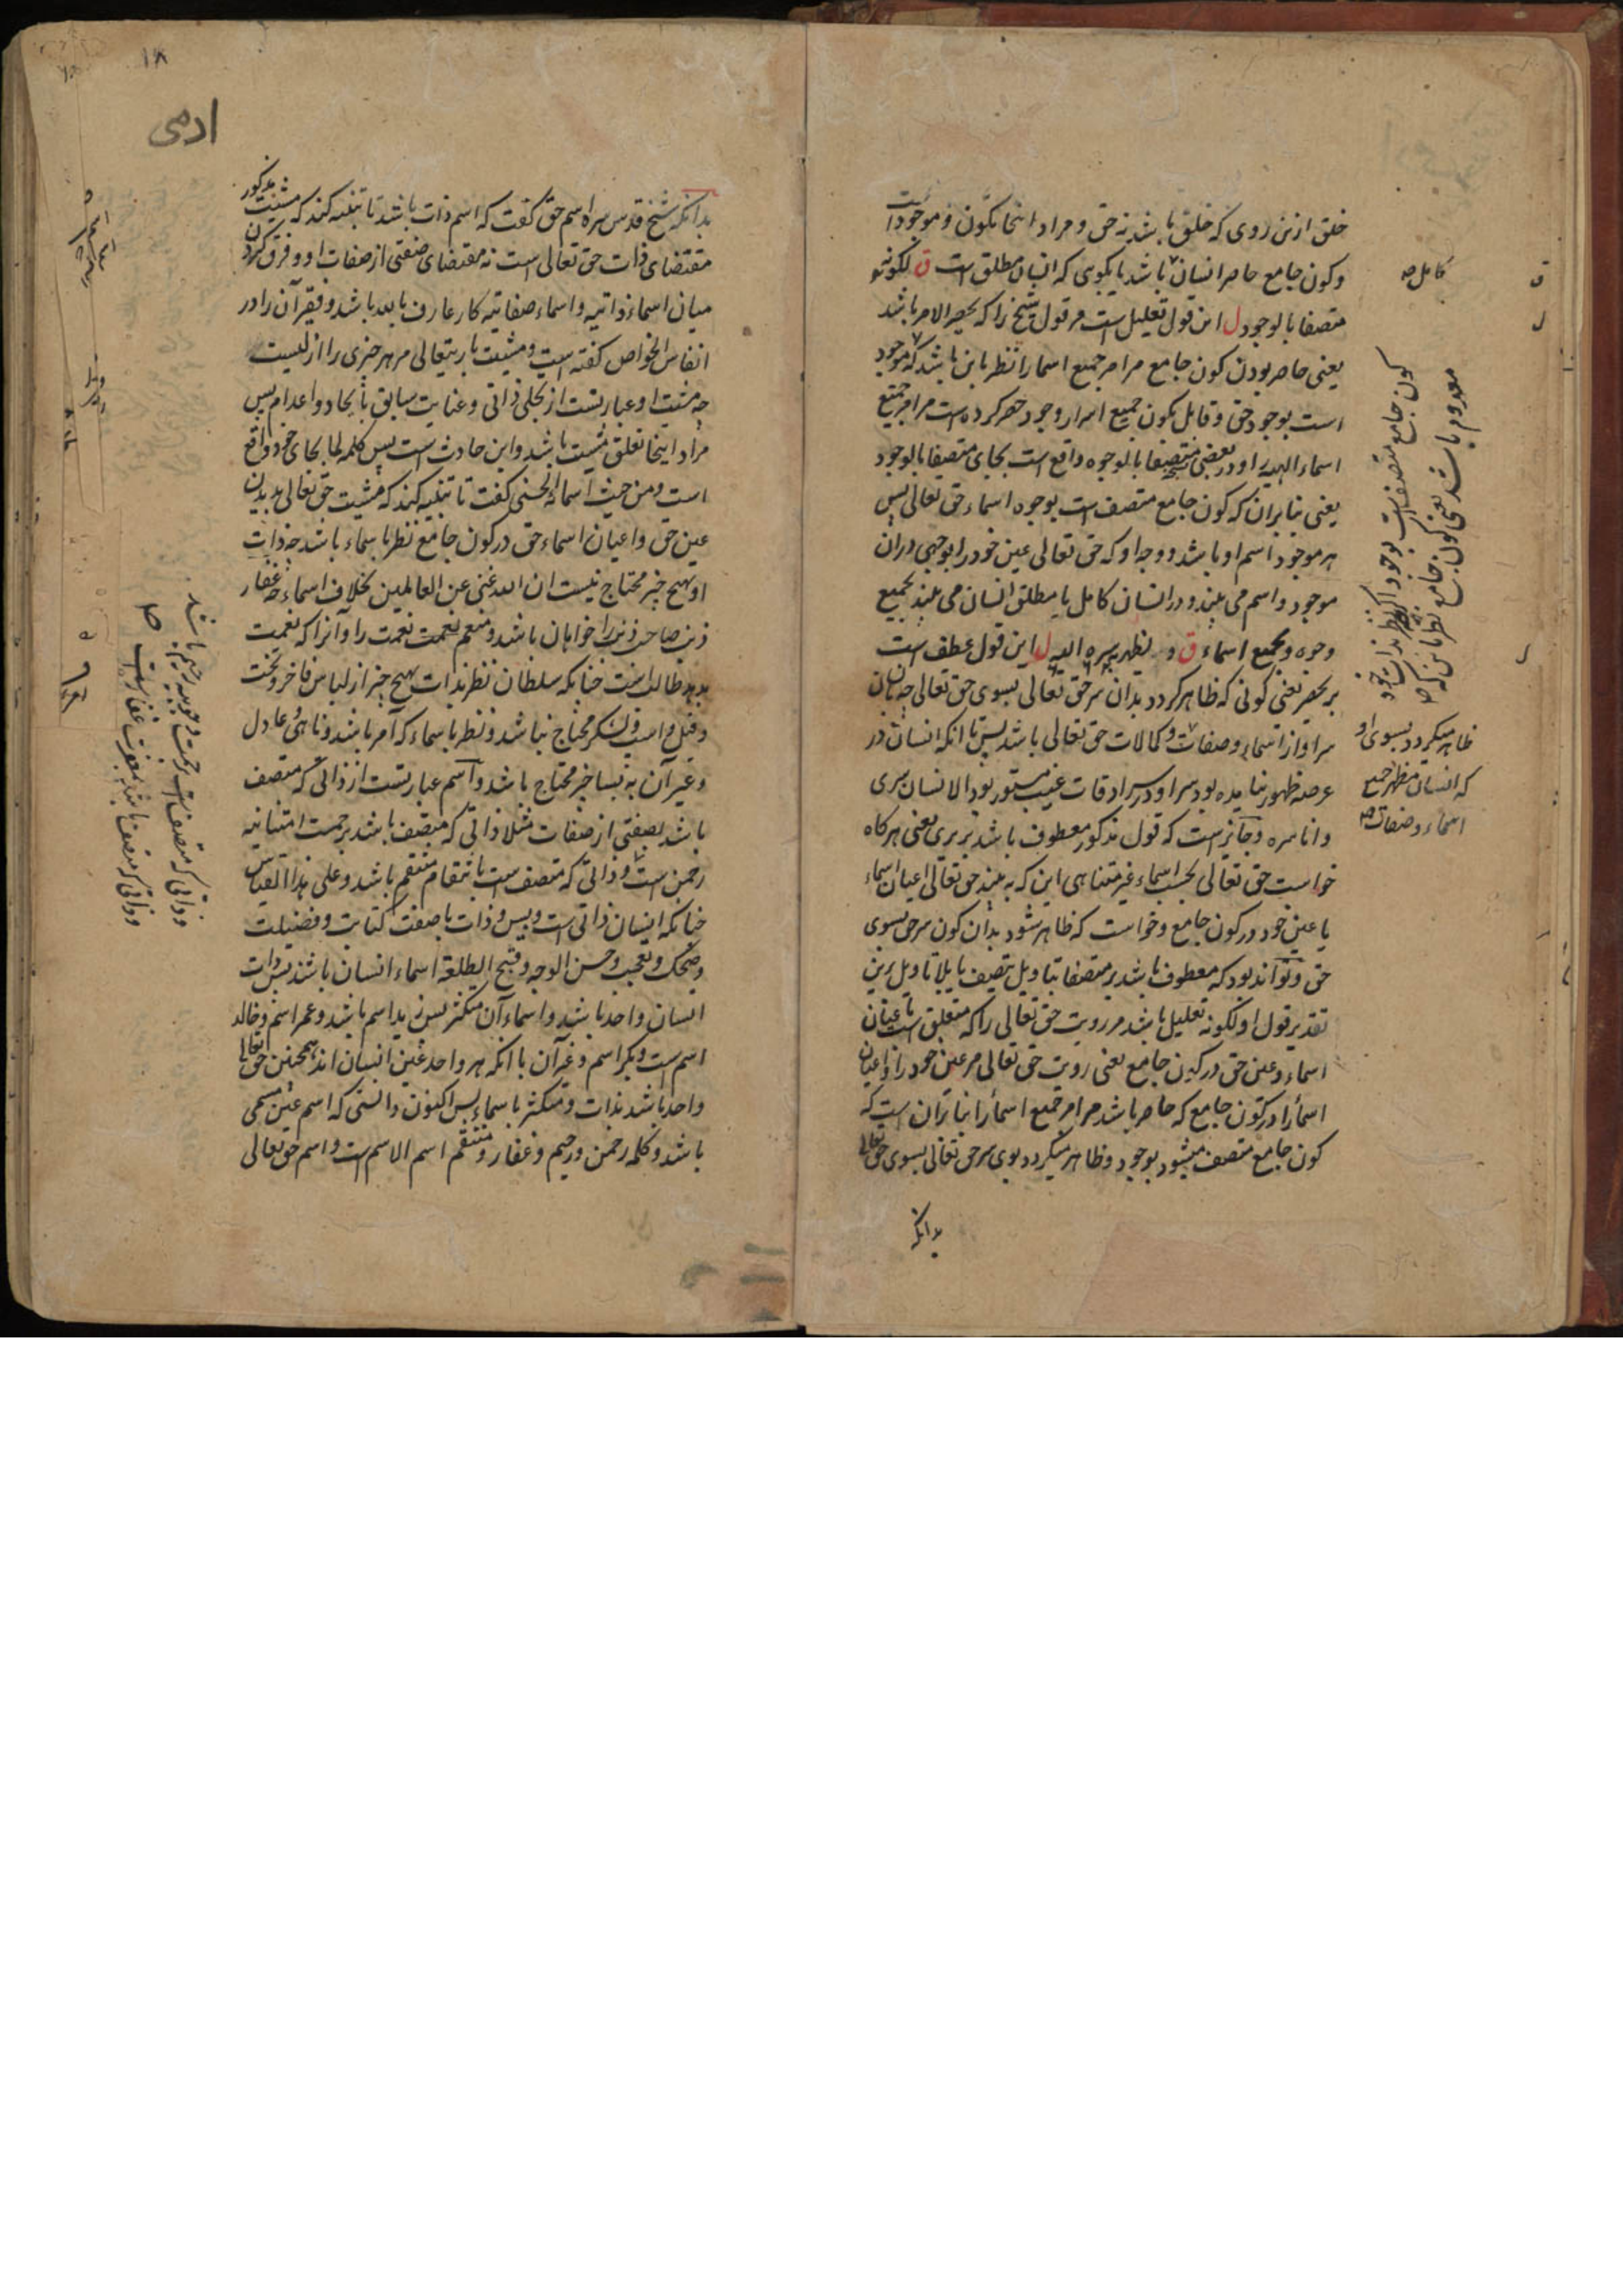 خلق ازین روی که خلق باشد نه حق و مراد اینجا بکون و موجود است
و کون جامع حاصر انسان باشد یا بگوی که انسان مطلق است ق لکونه
متصفا بالوجود ل این قول تعلیل است مر قول شیخ را که یحصر الامر باشد
یعنی حاصر بودن کون جامع مر امر جمیع اسما را نظر باین باشد که موجود
است بوجود حق و قابل بکون جمیع اسرار وجود حصر کرده است مر امر جمیع
اسماء الهیه را و در بعضی نسخه متصفا بالوجوه واقع است بجای متصفا بالوجود
یعنی بنابران که کون جامع متصف است بوجوه اسماء حق تعالی پس
هر موجود اسم او باشد و وجه او که حق تعالی عین خود را بوجهی دران
موجود و اسم می بیند و در انسان کامل یا مطلق انسان می بیند بجمیع
وجوه و بجمیع اسماء ق و یظهر به سره الیه ل این قول عطف است
بر یحصر یعنی کونی که ظاهر گردد بدان سر حق تعالی بسوی حق تعالی چه انسان
سر او از اسماء و صفات و کمالات حق تعالی باشد پس تا انکه انسان در
عرصه ظهور نیامده بود سر او در سرادقات غیب مستور بود الانسان سری
و انا سره و جایز است که قول مذکور معطوف باشد بر یری یعنی هرگاه
خواست حق تعالی بحسب اسماء غیر متناهی این که به بیند حق تعالی اعیان اسماء
یا عین خود در کون جامع و خواست که ظاهر شود بدان کون سر حق بسوی
حق و تواند بود که معطوف باشد بر متصفا بتاویل یتصف یا بلا تاویل برین
تقدیر قول او لکونه تعلیل باشد مر رویت حق تعالی را که متعلق است باعیان
اسماء و عین حق در کون جامع یعنی رویت حق تعالی مر عین خود را و اعیان
اسما را در کون جامع که حاصر باشد مر امر جمیع اسما را بنا بران است که
کون جامع متصف میشود بوجود و ظاهر میگردد بوی سر حق تعالی بسوی حق تعالی
بدانکه
کامل صح
ق
ل
ل
کون جامع متصف است بوجود اگرچه نظر بذات خود
معدوم باشد یعنی کون جامع نظر باین که
ظاهر میگردد بسوی او
که انسان مظهر جمیع
اسماء و صفات صح
۱۸
ادمی
بدانکه شیخ قدس سره اسم حق گفت که اسم ذات باشد تا تنبیه کند که مشیت مذکور
مقتضای ذات حق تعالی است نه مقتضای صفتی از صفات او و فرق کردن
میان اسماء ذاتیه و اسماء صفاتیه کار عارف بالله باشد و فقیر آن را در
انفاس الخواص گفته است و مشیت باریتعالی مر هر چیزی را ازلیست
چه مشیت او عبارتست از تجلی ذاتی و عنایت سابق بایجاد و اعدام پس
مراد اینجا تعلق مشیت باشد و این حادث است پس کلمه لما بجای خود واقع
است و من حیث اسمائه الحسنی گفت تا تنبیه کند که مشیت حق تعالی بدیدن
عین حق و اعیان اسماء حق در کون جامع نظر باسماء باشد چه ذات
او بهیچ چیز محتاج نیست ان الله غنی عن العالمین بخلاف اسماء چه غفار
ذنب صاحب ذنب را خواهان باشد و منعم نعمت را و آنرا که نعمت
بدهد طالب است چنانکه سلطان نظر بذات بهیچ چیز از لباس فاخر و تخت
و فیل و اسب و لشکر محتاج نباشد و نظر باسماء که آمر باشد و ناهی و عادل
و غیر آن به بسا چیز محتاج باشد و اسم عبارتست از ذاتی که متصف
باشد بصفتی از صفات مثلا ذاتی که متصف باشد برحمت امتنانیه
رحمن است و ذاتی که متصف است بانتقام منتقم باشد و علی هذا القیاس
چنانکه انسان ذاتی است و بس و ذات با صفت کتابت و فضیلت
و ضحک و تعجب و حسن الوجه و قبح الطلعة اسماء انسان باشد پس ذات
انسان واحد باشد و اسماء آن متکثر پس زید اسم باشد و عمر اسم و خالد
اسم است و بکر اسم و غیر آن با انکه هر واحد عین انسان اند همچنین حق تعالی
واحد باشد بذات و متکثر باسماء پس اکنون دانستی که اسم عین مسمی
باشد و کلمه رحمن و رحیم و غفار و منتقم اسم الاسم است و اسم حق تعالی
و ذاتی که متصف است برحمت وجوبیه رحیم باشد
و ذاتی که متصف باشد بمغفرت غفار است صح